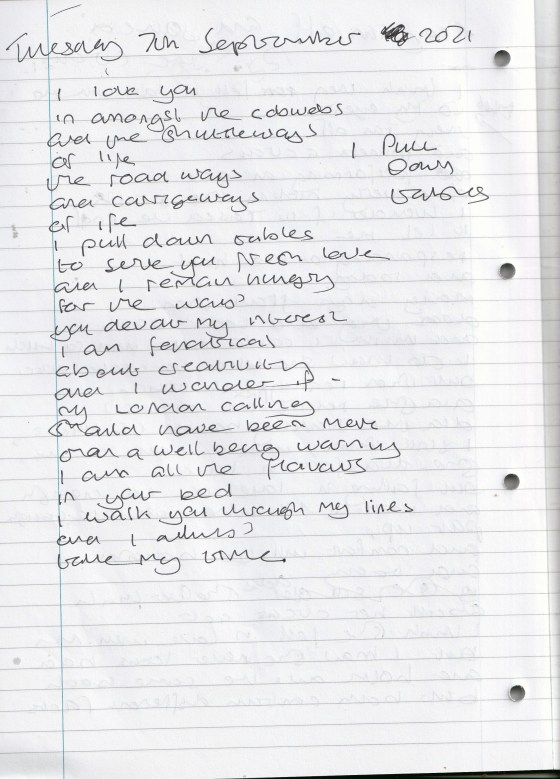 Tuesday 7th September 2021
I love you
in amongst the cobwebs
and the shuttleways
of life
the road ways
and carrigeways
of life
I pull down tables
to serve you fresh love
and I remain hungry
for the ways
you devour my interest
I am fanatical
about creativity
and I wonder if -
my London calling
should have been more
than a well being warning
I am all the flavours
in your bed
I walk you through my lines
and I always
take my time.
I Pull
Down
tables